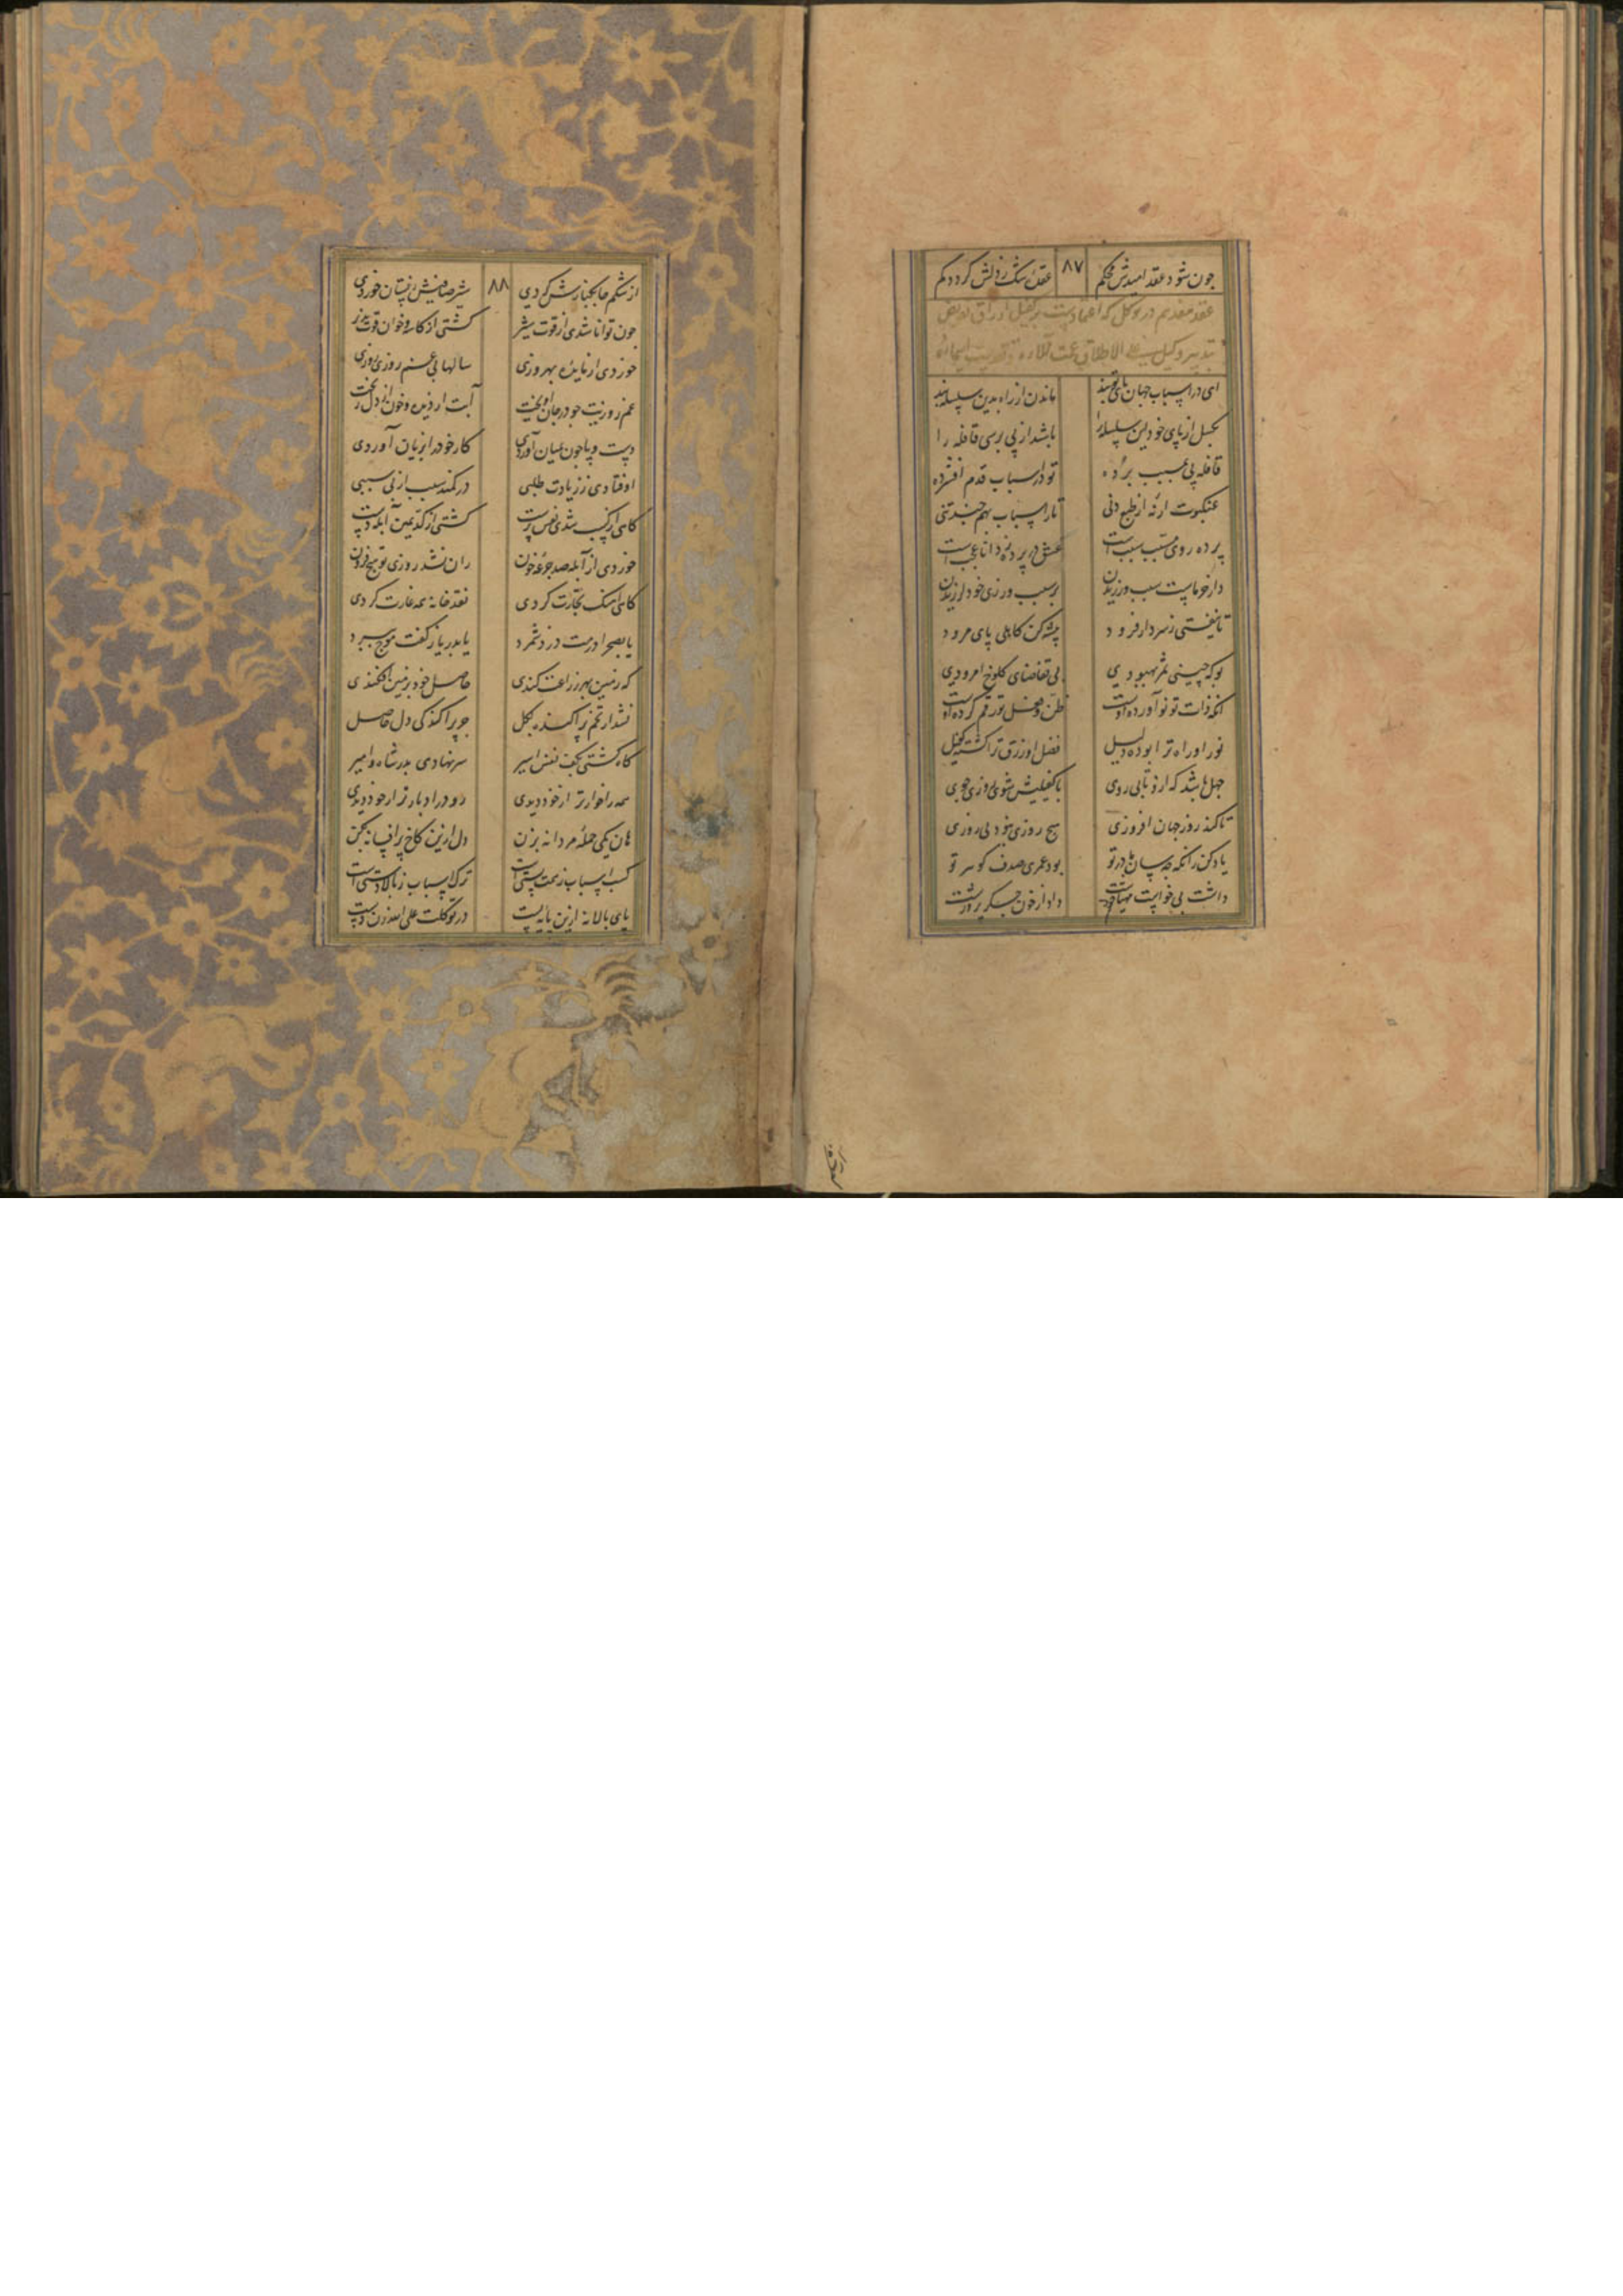 چون شود عقد امیدش محکم ۸۷ عقدهٔ شک ز دلش گردد کم
عقد هفدهم در توکل که اعتمادست بر کفیل ارزاق و تفویض
تدبیر وکیل علی الاطلاق
ای در اسباب جهان پای تو بند ماندن از راه بدین سلسله چند
بگسل از پای خود این سلسله را باشد از پی برسی قافله را
قافله پی بمسبب برده تو در اسباب قدم افشرده
عنکبوت ار نه از طبع دنی تار اسباب بهم چند تنی
پرده روی مسبب سبب است عشق در پرده ز دانا عجب است
دار خرماست سبب ورزیدن بر سبب ورزی خود لرزیدن
تا نیفتی ز سر دار فرود پیشه کن کاهلی پای مرود
بو که چینی ثمر بهبودی بی تقاضای کلوخ امرودی
آنکه ذات تو نو آورده اوست ظن و فضل تو رقم کرده اوست
نور او راه ترا بوده دلیل فضل او رزق ترا گشته کفیل
جهل باشد که ازو تابی روی با کفیلیش شوی روزی جوی
تا کند روز جهان افروزی هیچ روزی نبود بی روزی
یاد کن زانکه چه سان مادر تو بود عمری صدف گوهر تو
داشت بی خواست مهیا خورشت داد از خون جگر پرورشت
از شکم جا بکنارش کردی ۸۸ شیر صافیش ز پستان خوردی
چون توانا شدی از قوت شیر گشتی از کاسه و خوان قوت پذیر
خوردی از مایده بهروزی سالها بی غم روزی روزی
غم روزیت چو در جان آویخت آبت از دیده و خون از دل ریخت
دست و پا چون بمیان آوردی کار خود را بزیان آوردی
اوفتادی ز زیادت طلبی در کمند سبب از بی سببی
گاهی از کسب شدی نفس پرست گشتی از کد یمین آبله دست
خوردی از آبله صد جرعه خون زان نشد روزی تو هیچ فزون
گاهی آهنگ تجارت کردی نقد خانه همه غارت کردی
یا بصحرا درمت دزد شمرد یا بدریاز کفت موج ببرد
که زمین بهر زراعت کندی حاصل خود بزمین افکندی
نشد از تخم پراکنده بگل جز پراکندگی دل حاصل
گاه گشتی بکف نفس اسیر سر نهادی بدر شاه و امیر
همه را خوارتر از خود دیدی رو در ادبارتر از خود دیدی
هان یکی حمله مردانه بزن دل ازین کاخ پر افسانه بکن
کسب اسباب ز همت پستی است ترک اسباب ز بالادستی است
پای بالا نه ازین پایه پست در توکلت علی الله زن دست